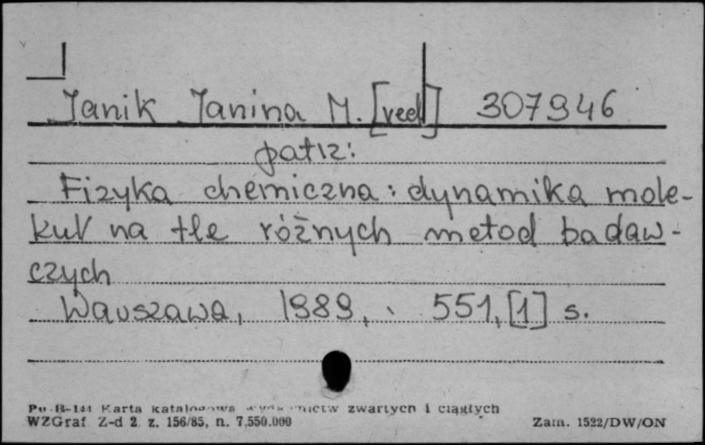 Janik Janina M. [red] 307946
patrz:
Fizyka chemiczna : dynamika mole-
kuł na tle różnych metod badaw-
czych
Warszawa, 1989, 551, [1] s.
Pu-B-144 Karta katalogowa wydawnictw zwartych i ciągłych
WZGraf. Z-d 2. z. 156/85, n. 7.550.000
Zam. 1522/DW/ON